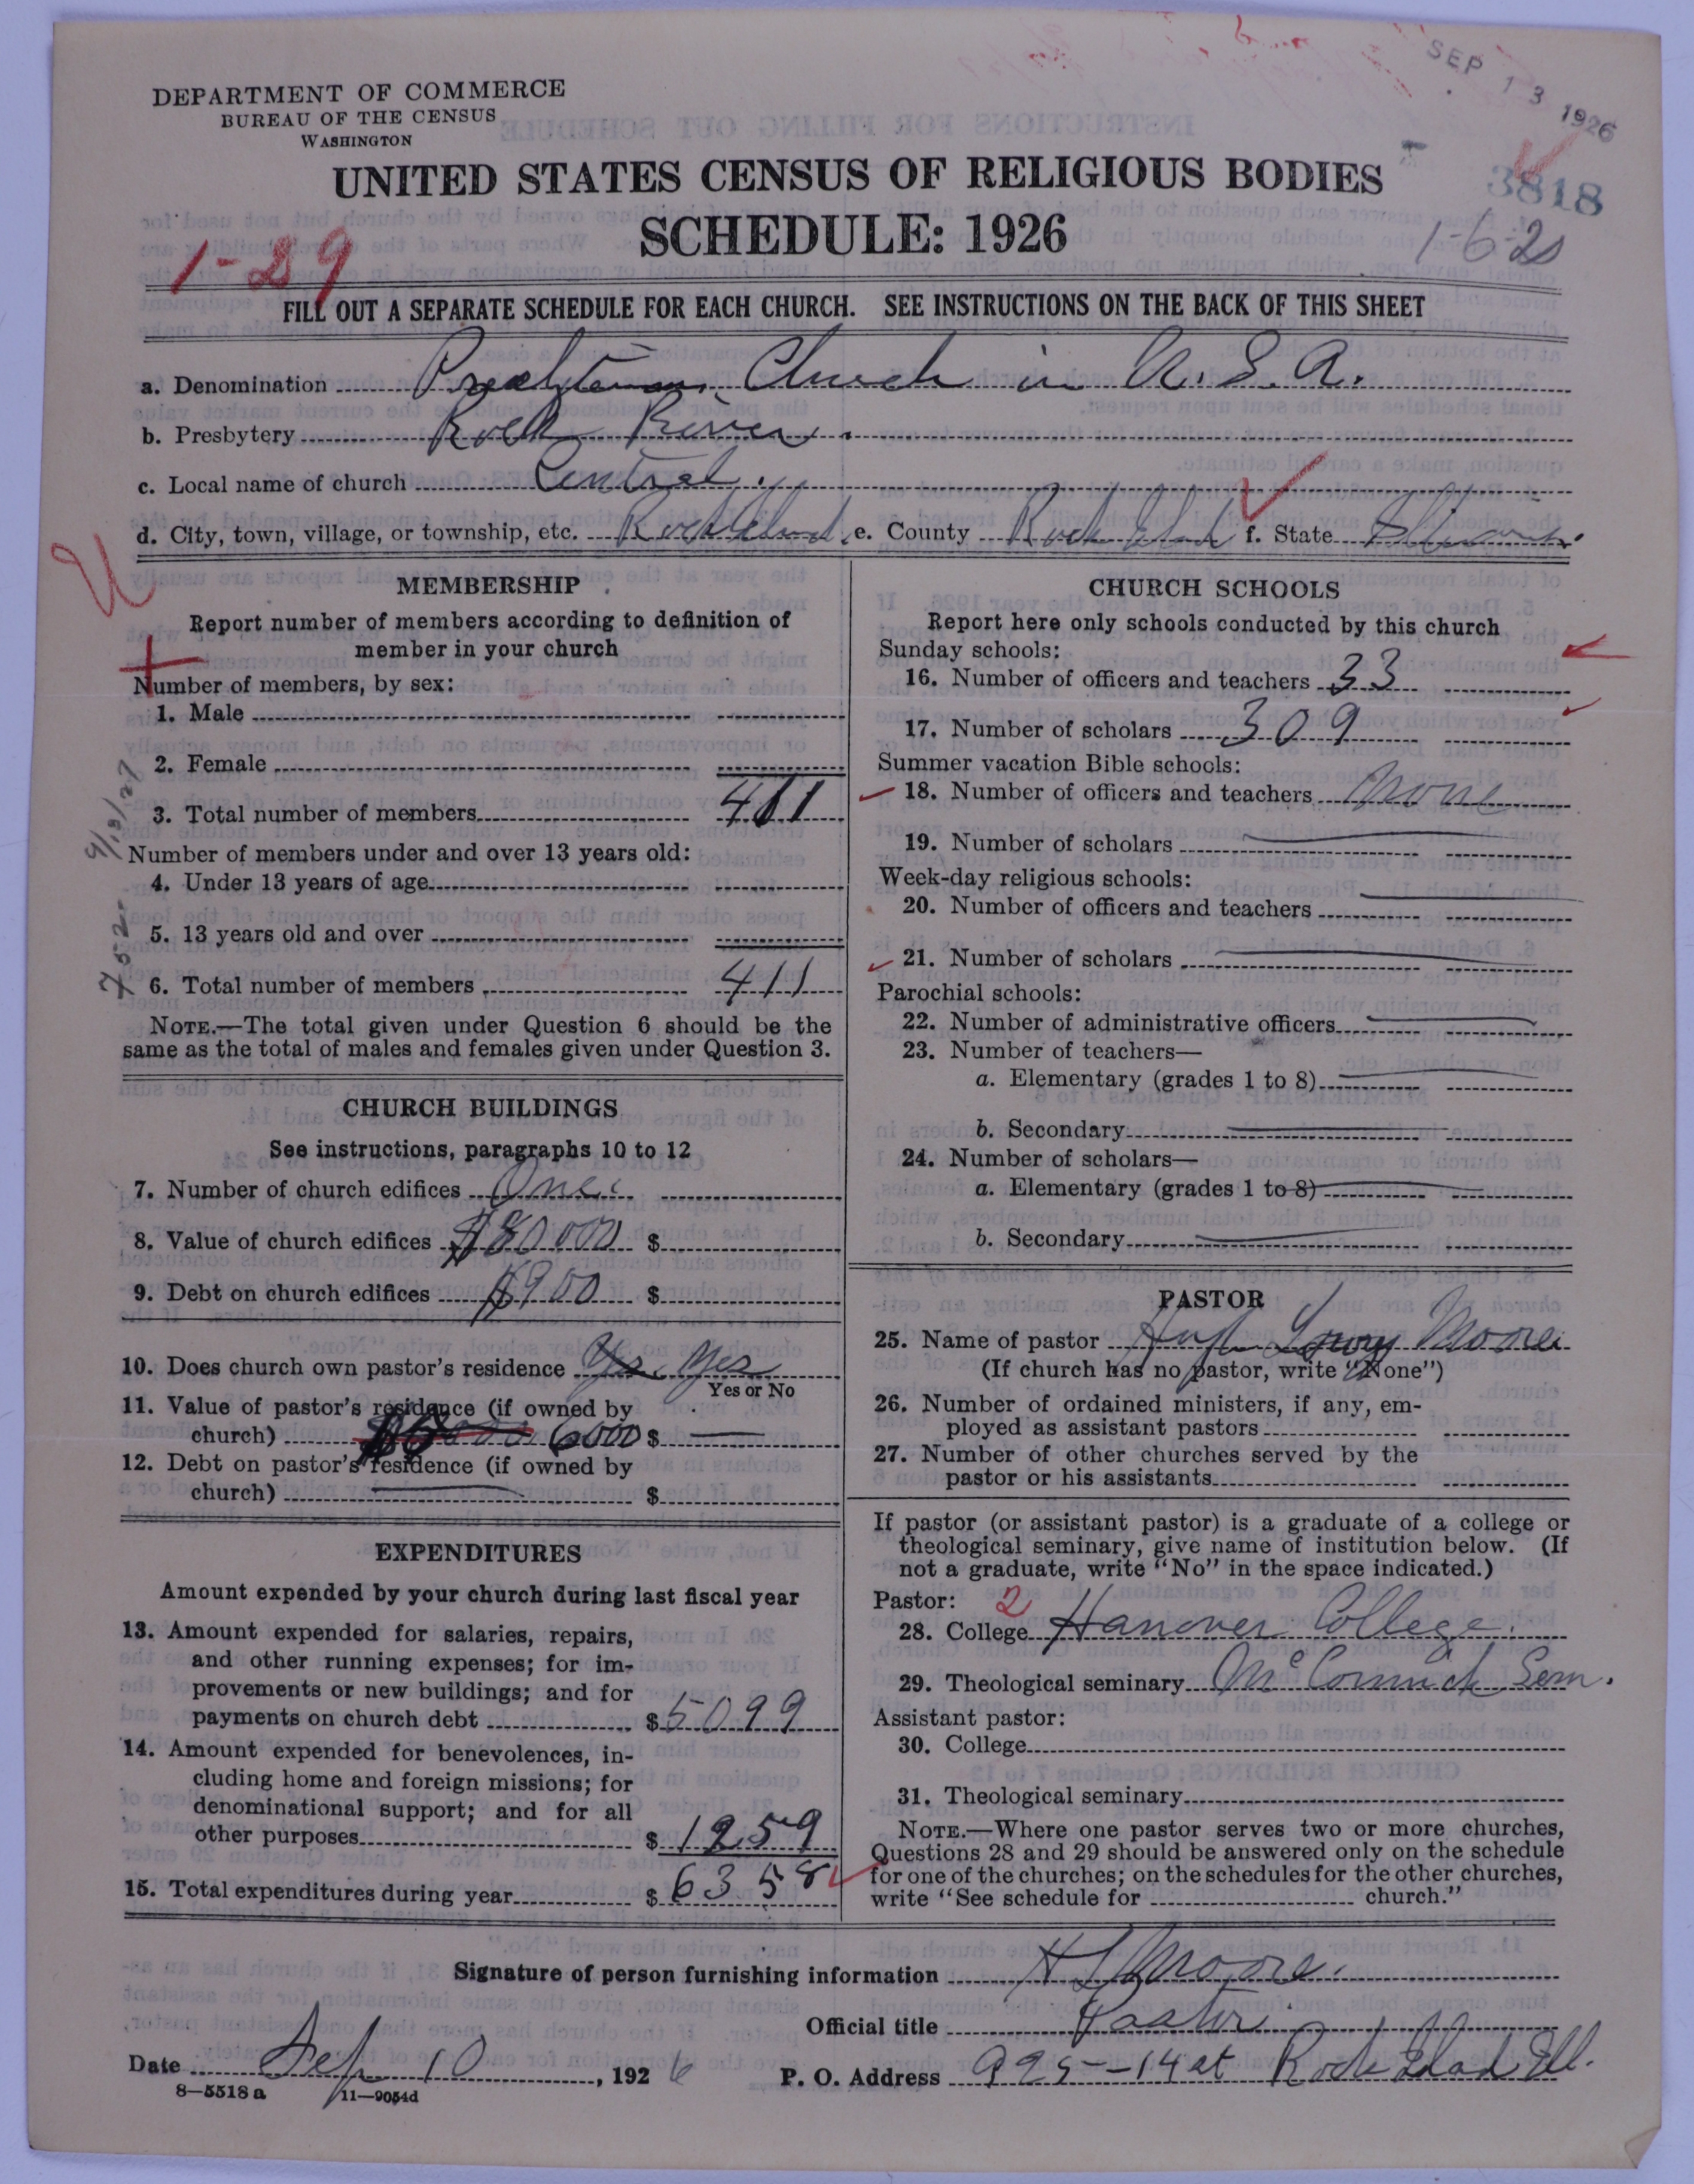 SEP 13 1926
DEPARTMENT OF COMMERCE
BUREAU OF THE CENSUS
WASHINGTON
UNITED STATES CENSUS OF RELIGIOUS BODIES
3818
SCHEDULE: 1926
1-6-20
1-29
FILL OUT A SEPARATE SCHEDULE FOR EACH CHURCH. SEE INSTRUCTIONS ON THE BACK OF THIS SHEET
a. Denomination Presbyterian Church in U.S.A.
b. Presbytery Rock River
c. Local name of church Central.
d. City, town, village, or township, etc. Rock Island e. County Rock Island f. State Illinois.
MEMBERSHIP
Report number of members according to definition of
member in your church
Number of members, by sex:
1. Male
2. Female
3. Total number of members 411
Number of members under and over 13 years old:
4. Under 13 years of age
5. 13 years old and over
6. Total number of members 411
NOTE.—The total given under Question 6 should be the
same as the total of males and females given under Question 3.
CHURCH BUILDINGS
See instructions, paragraphs 10 to 12
7. Number of church edifices One
8. Value of church edifices $80000 $
9. Debt on church edifices $900 $
10. Does church own pastor's residence Yes Yes
Yes or No
11. Value of pastor's residence (if owned by
church) 6000 $
12. Debt on pastor's residence (if owned by
church) $
EXPENDITURES
Amount expended by your church during last fiscal year
13. Amount expended for salaries, repairs,
and other running expenses; for im-
provements or new buildings; and for
payments on church debt $ 5099
14. Amount expended for benevolences, in-
cluding home and foreign missions; for
denominational support; and for all
other purposes $ 1259
15. Total expenditures during year $ 6358
CHURCH SCHOOLS
Report here only schools conducted by this church
Sunday schools:
16. Number of officers and teachers 33
17. Number of scholars 309
Summer vacation Bible schools:
18. Number of officers and teachers None
19. Number of scholars
Week-day religious schools:
20. Number of officers and teachers
21. Number of scholars
Parochial schools:
22. Number of administrative officers
23. Number of teachers—
a. Elementary (grades 1 to 8)
b. Secondary
24. Number of scholars—
a. Elementary (grades 1 to 8)
b. Secondary
PASTOR
25. Name of pastor Hugh Lowry Moore
(If church has no pastor, write "None")
26. Number of ordained ministers, if any, em-
ployed as assistant pastors
27. Number of other churches served by the
pastor or his assistants
If pastor (or assistant pastor) is a graduate of a college or
theological seminary, give name of institution below. (If
not a graduate, write "No" in the space indicated.)
Pastor: 2
28. College Hanover College.
29. Theological seminary McCormick Sem.
Assistant pastor:
30. College
31. Theological seminary
NOTE.—Where one pastor serves two or more churches,
Questions 28 and 29 should be answered only on the schedule
for one of the churches; on the schedules for the other churches,
write "See schedule for church."
Signature of person furnishing information H L Moore.
Official title Pastor
Date Sep 10, 1926 P. O. Address 925-14 st Rock Island Ill.
8—5518 a 11—9054d